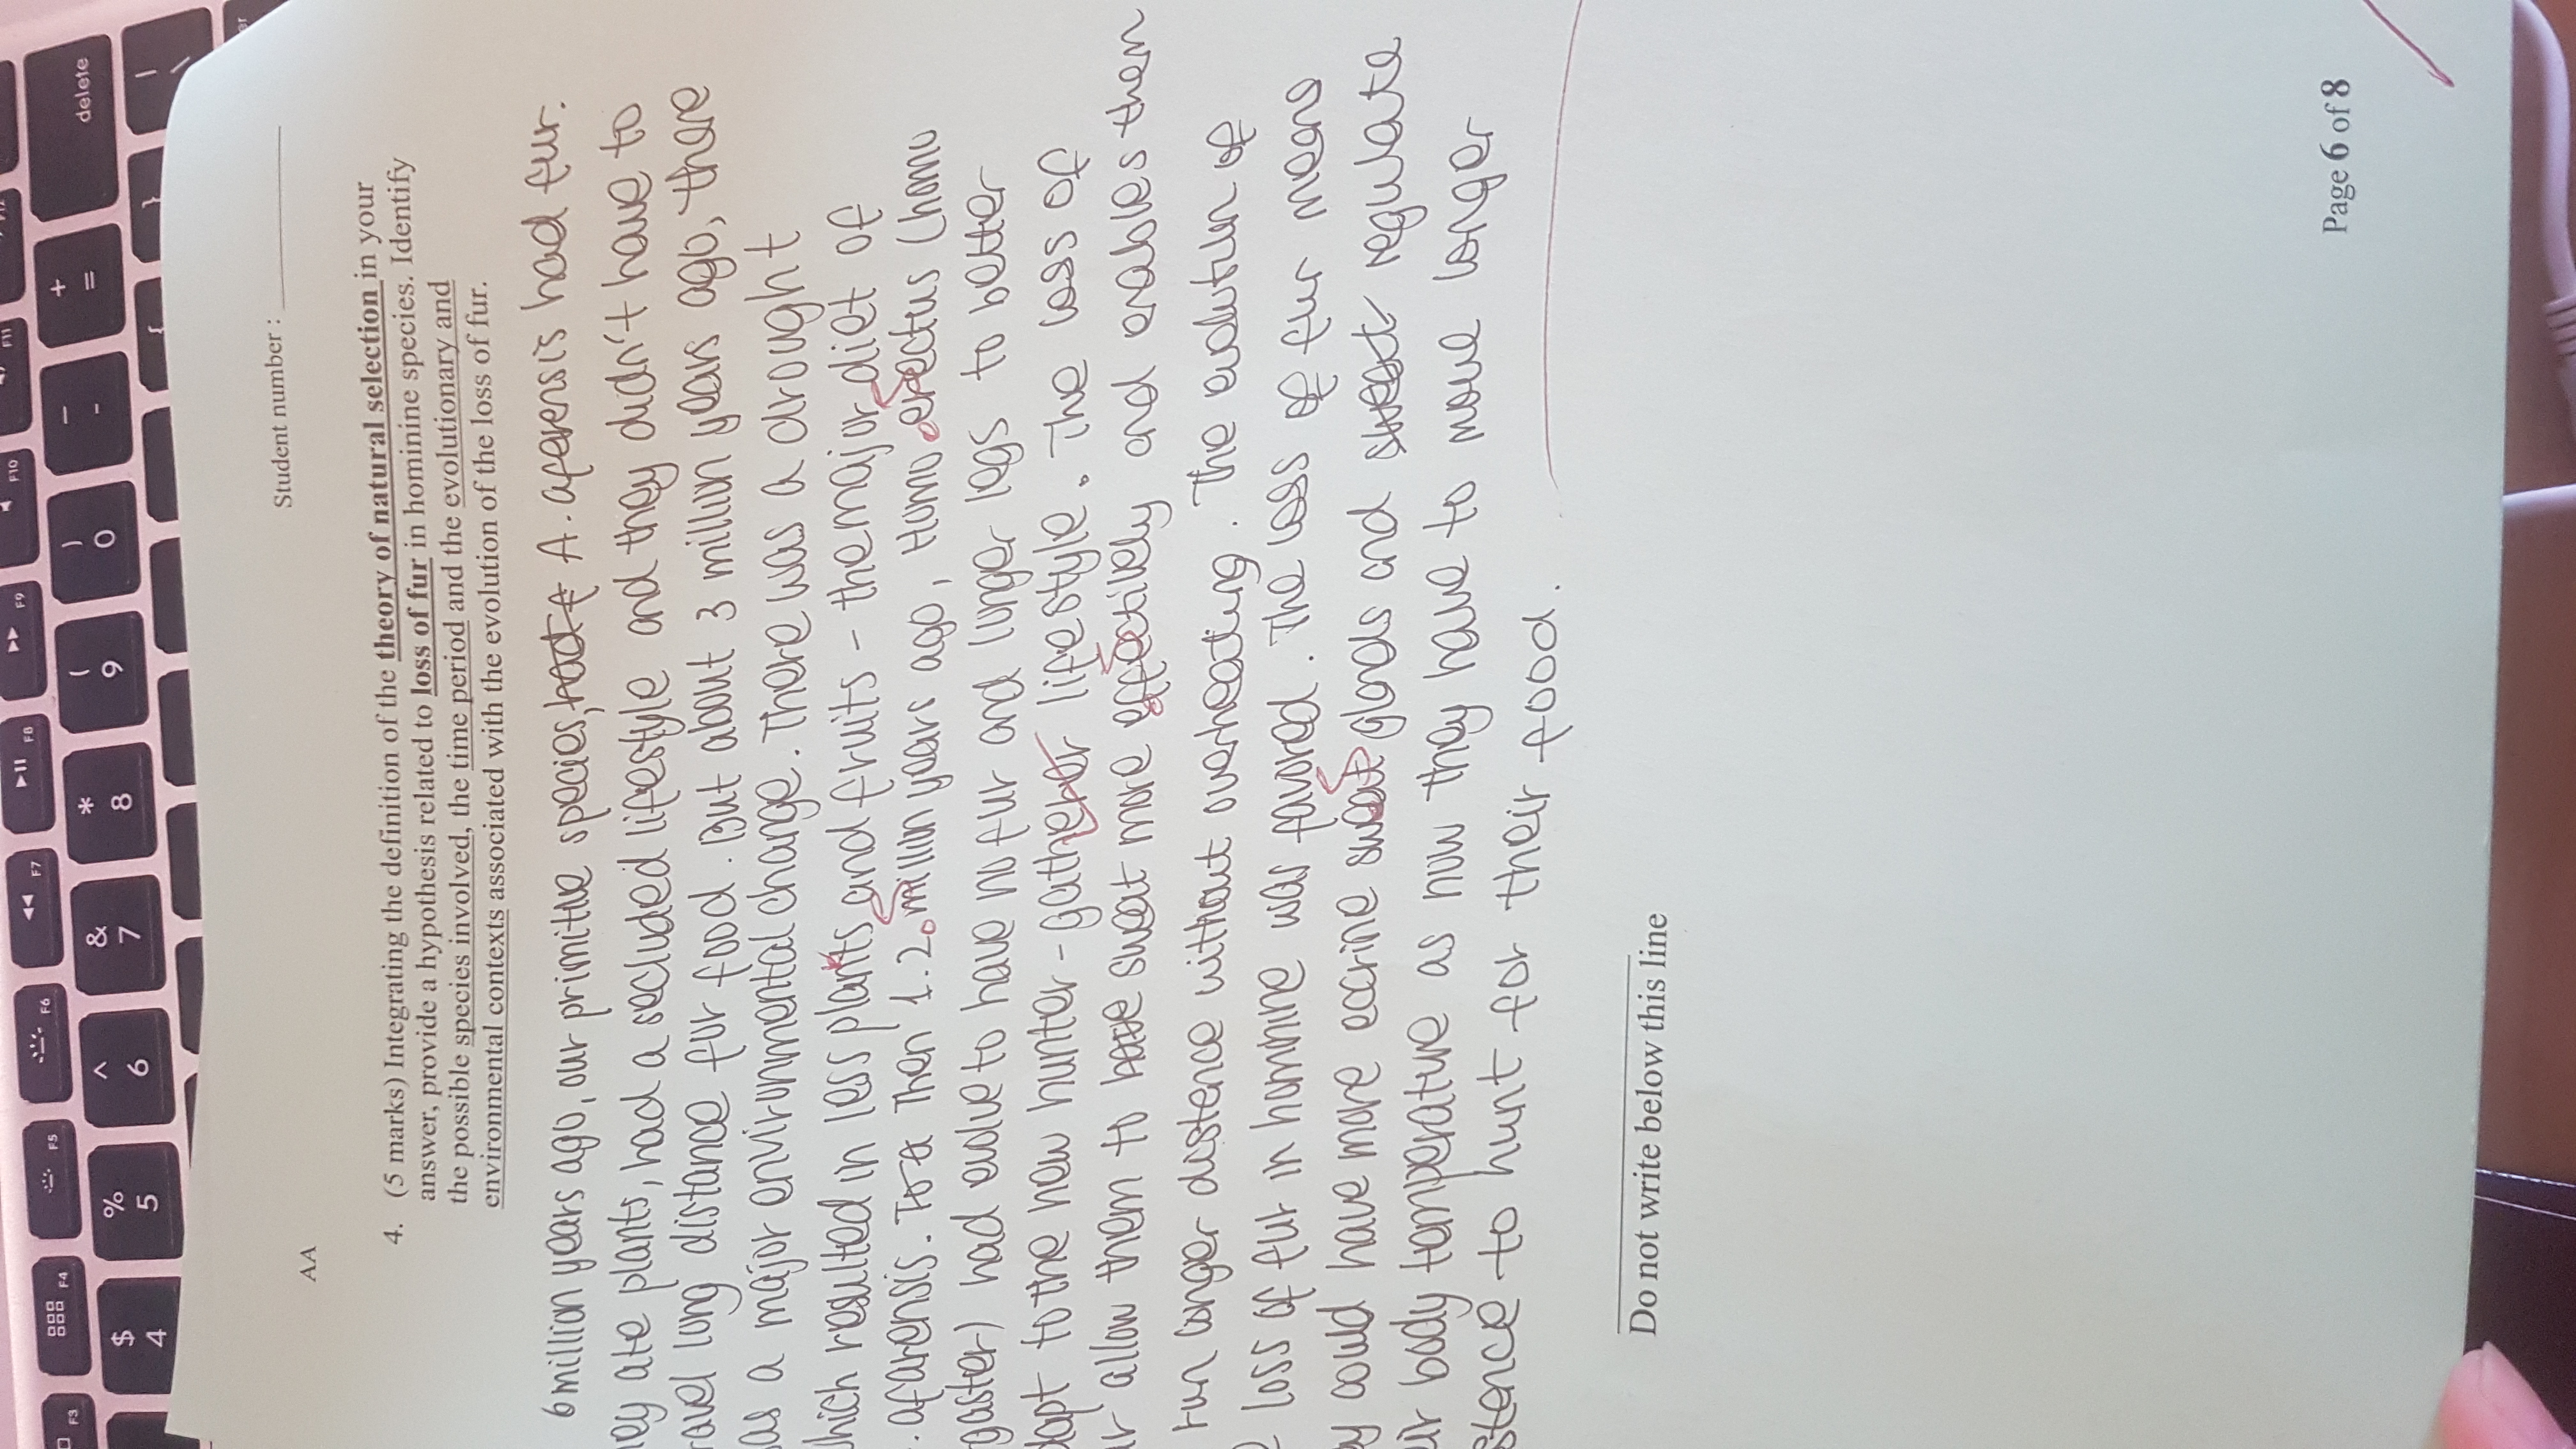 AA
Student number :
4. (5 marks) Integrating the definition of the theory of natural selection in your
answer, provide a hypothesis related to loss of fur in hominine species. Identify
the possible species involved, the time period and the evolutionary and
environmental contexts associated with the evolution of the loss of fur.
6 million years ago, our primitive species, A. afarensis had fur.
hey ate plants, had a secluded lifestyle and they didn't have to
ravel long distance for food. But about 3 million years ago, there
as a major environmental change. There was a drought
which resulted in less plants and fruits - the major diet of
. afarensis. Then 1.2 million years ago, Homo erectus (homo
gaster) had evolve to have no fur and longer legs to better
dapt to the new hunter-gatherer lifestyle. The loss of
ur allow them to sweat more effectively and enables them
run longer distence without overheating. The evolution of
loss of fur in hominine was favored. The loss of fur means
y could have more eccrine sweat glands and regulate
ir body temperature as now they have to move longer
stence to hunt for their food.
Do not write below this line
Page 6 of 8
delete
+
=
-
)
0
(
9
*
8
&
7
^
6
%
5
$
4
F12
F11
F10
F9
F8
F7
F6
F5
F4
F3